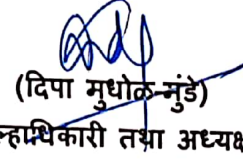 (दिपा मुधोळ-मुंडे)
ल्हाधिकारी तथा अध्यक्ष